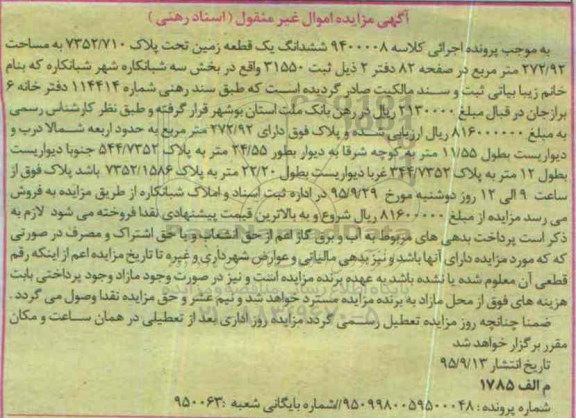 آگهی مزایده اموال غیر منقول (اسناد رهنی)
به موجب پرونده اجرائی کلاسه ۹۴۰۰۰۰۸ ششدانگ یک قطعه زمین تحت پلاک ۷۳۵۲/۷۱۰ به مساحت
۲۷۲/۹۲ متر مربع در صفحه ۸۲ دفتر ۲ ذیل ثبت ۳۱۵۵۰ واقع در بخش سه شبانکاره شهر شبانکاره که بنام
خانم زیبا بیاتی ثبت و سند مالکیت صادر گردیده است که طبق سند رهنی شماره ۱۱۴۴۱۴ دفتر خانه ۶
برازجان در قبال مبلغ ۲۱۳۰۰۰۰۰ ریال در رهن بانک ملت استان بوشهر قرار گرفته و طبق نظر کارشناس رسمی
به مبلغ ۸۱۶۰۰۰۰۰۰ ریال ارزیابی شده و پلاک فوق دارای ۲۷۲/۹۲ متر مربع به حدود اربعه شمالا درب و
دیواریست بطول ۱۱/۵۵ متر به کوچه شرقا به دیوار بطور ۲۴/۵۵ متر به پلاک ۵۴۴/۷۳۵۲ جنوبا دیواریست
بطول ۱۲ متر به پلاک ۳۴۴/۷۳۵۲ غربا دیواریست بطول ۲۲/۲۰ متر به پلاک ۷۳۵۲/۱۵۸۶ باشد پلاک فوق از
ساعت ۹ الی ۱۲ روز دوشنبه مورخ ۹۵/۹/۲۹ در اداره ثبت اسناد و املاک شبانکاره از طریق مزایده به فروش
می رسد مزایده از مبلغ ۸۱۶۰۰۰۰۰ ریال شروع و به بالاترین قیمت پیشنهادی نقدا فروخته می شود لازم به
ذکر است پرداخت بدهی های مربوط به آب و برق گاز اعم از حق انشعاب و یا حق اشتراک و مصرف در صورتی
که که مورد مزایده دارای آنها باشد و نیز بدهی مالیاتی و عوارض شهرداری و غیره تا تاریخ مزایده اعم از اینکه رقم
قطعی آن معلوم شده یا نشده باشد به عهده برنده مزایده است و نیز در صورت وجود مازاد وجود پرداختی بابت
هزینه های فوق از محل مازاد به برنده مزایده مسترد خواهد شد و نیم عشر و حق مزایده نقدا وصول می گردد.
ضمنا چنانچه روز مزایده تعطیل رسمی گردد مزایده روز اداری بعد از تعطیلی در همان ساعت و مکان
مقرر برگزار خواهد شد
تاریخ انتشار ۹۵/۹/۱۳
م الف ۱۷۸۵
شماره پرونده: ۹۵۰۹۹۸۰۰۵۹۵۰۰۰۴۸//شماره بایگانی شعبه: ۹۵۰۰۶۳